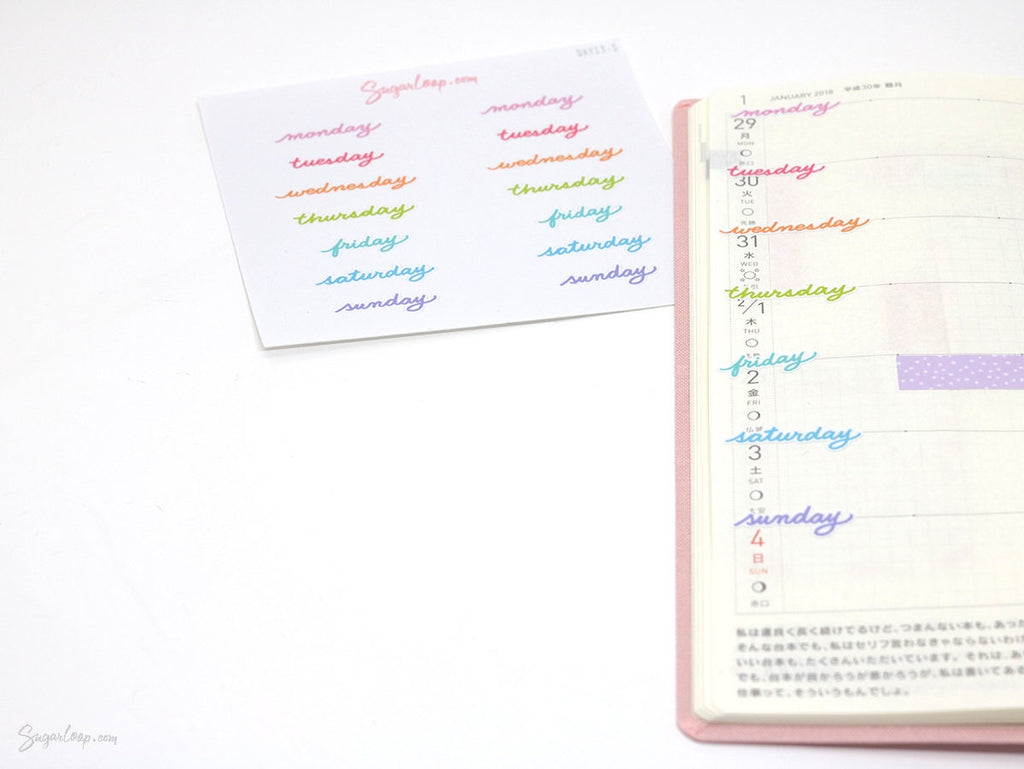 DAY13-S
Sugarloop.com
monday monday
tuesday tuesday
wednesday wednesday
thursday thursday
friday friday
saturday saturday
sunday sunday
1 JANUARY 2018 平成30年 睦月
monday
29
月
MON
赤口
tuesday
30
火
TUE
先勝
wednesday
31
水
WED
thursday
2/1
木
THU
friday
2
金
FRI
仏滅
saturday
3
土
SAT
大安
sunday
4
日
SUN
赤口
私は運良く長く続けてるけど、つまんない本も、あった
そんな台本でも、私はセリフ言わなきゃならないわけ
いい台本も、たくさんいただいています。それは、あ
でも、台本が良かろうが悪かろうが、私は書いてある
仕事って、そういうもんでしょ。
Sugarloop.com